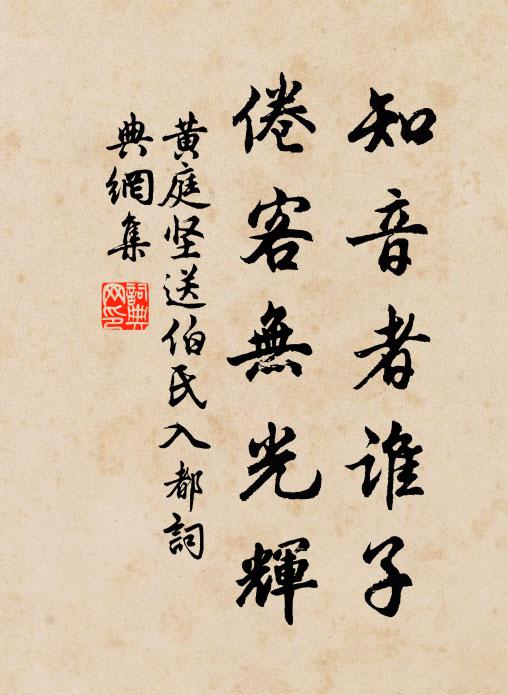 知音者谁子
倦客無光輝
黄庭坚送伯氏入都詞
典網集
詞典網印